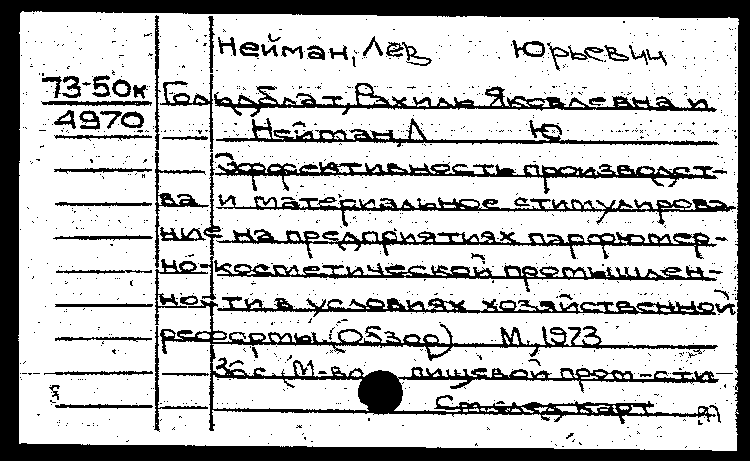 Нейман, Лев Юрьевич
73-50к Гольдблат, Рахиль Яковлевна и
4970 Нейман, Л Ю
Эффективность производст-
ва и материальное стимулирова-
ние на предприятиях парфюмер-
но-косметической промышлен-
ности в условиях хозяйственной
реформы. (Обзор) М., 1973
36 с. (М-во пищевой пром-сти
См. след. карт.